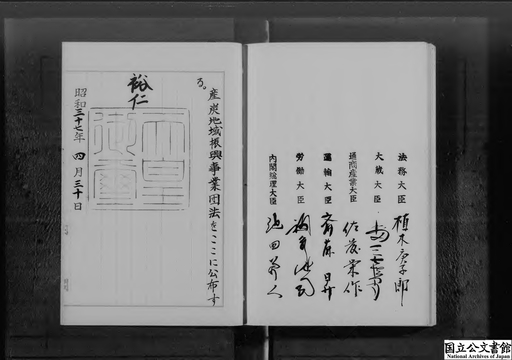 法務大臣 植木庚子郎
大蔵大臣 水田三喜男
通商産業大臣 佐藤栄作
運輸大臣 斎藤昇
労働大臣
内閣総理大臣 池田勇人
産炭地域振興事業団法をここに公布す
る。
裕仁
天皇
御璽
昭和三十七年四月三十日
国立公文書館
National Archives of Japan